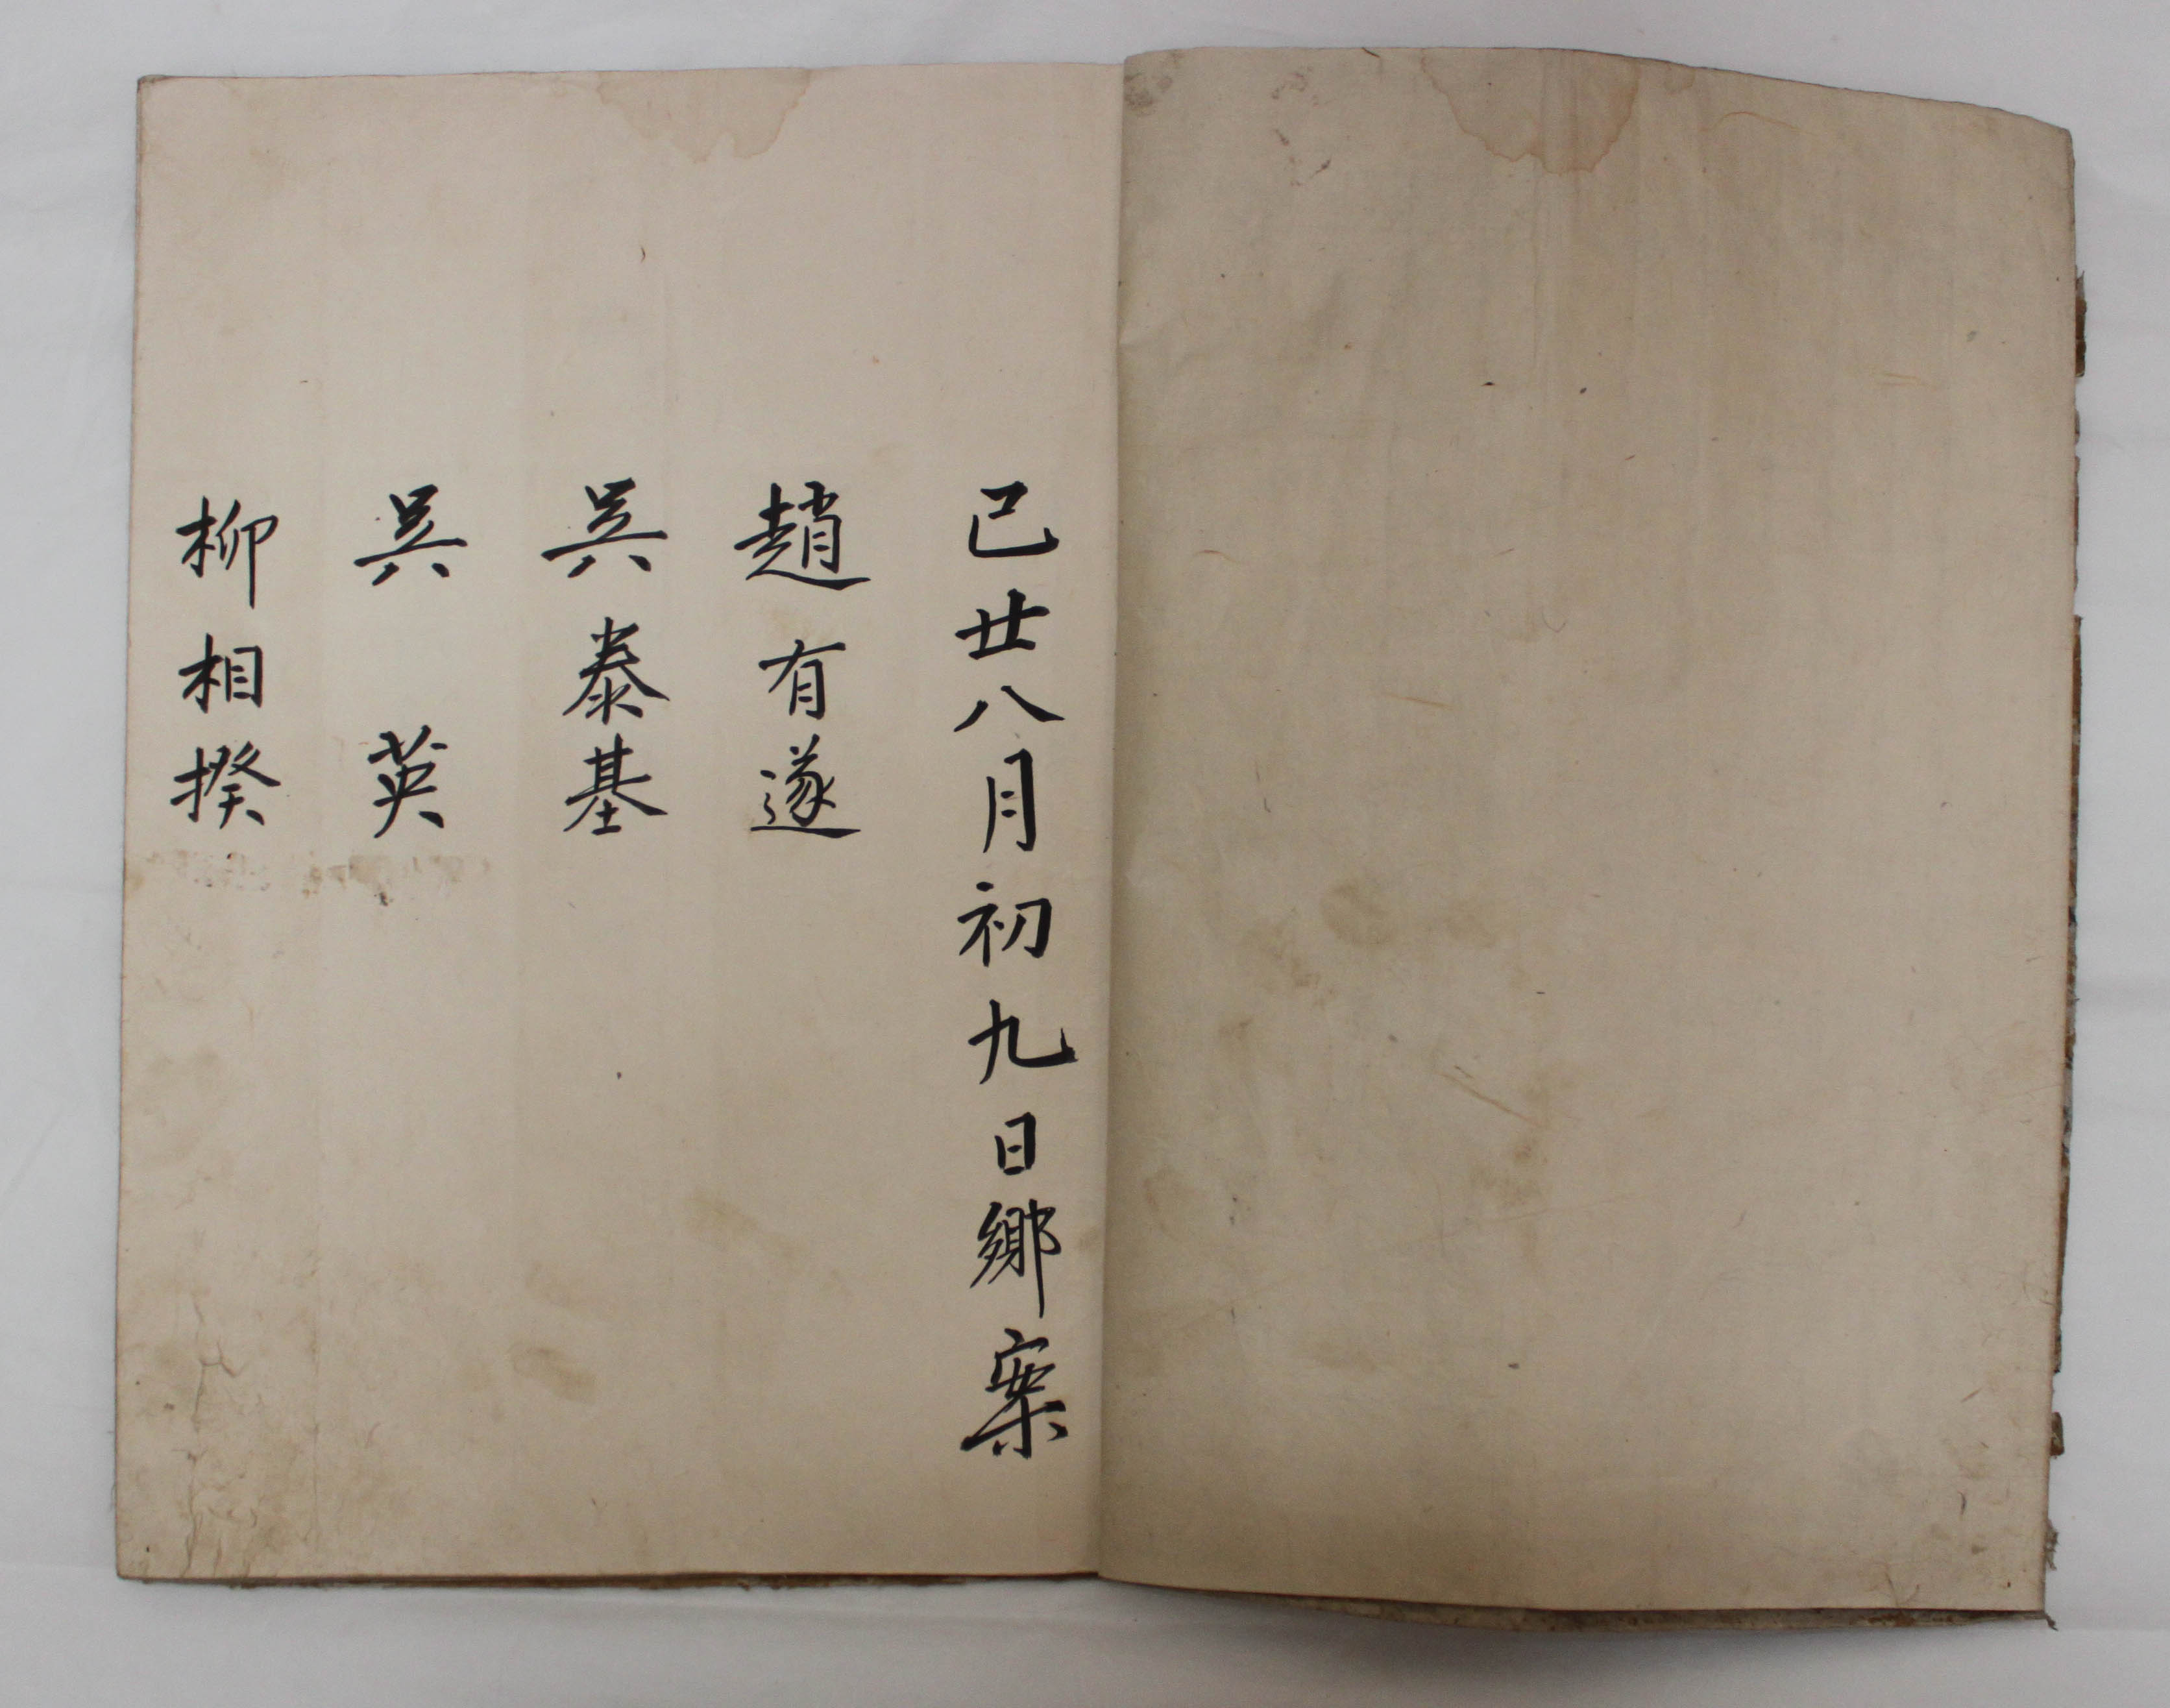 己廿八月初九日鄕案
趙有遂
吳泰基
吳英
柳相揆